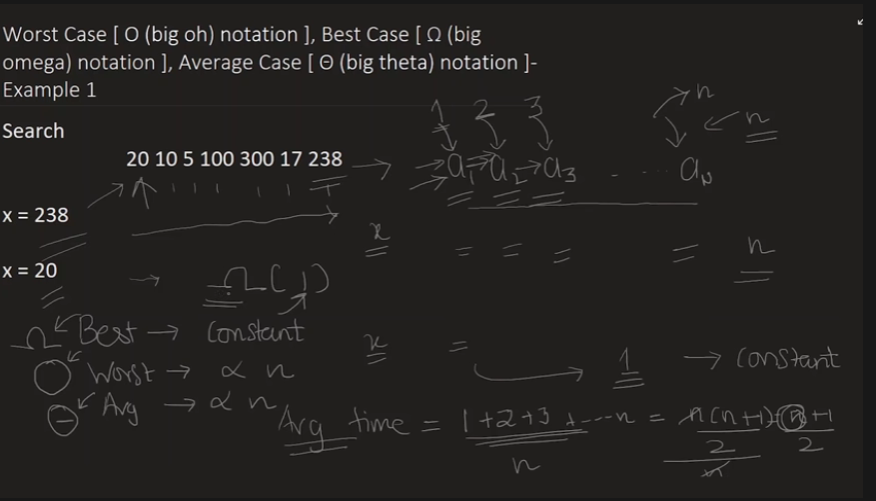 Worst Case [ O (big oh) notation ], Best Case [ Ω (big
omega) notation ], Average Case [ Θ (big theta) notation ]-
Example 1
Search
1 2 3 n
n
20 10 5 100 300 17 238 → a₁ → a₂ → a₃ . . . . aₙ
x = 238
x = = = = n
x = 20 → Ω(1)
Ω Best → Constant
x = 1 → Constant
O Worst → ∝ n
Θ Avg → ∝ n
Avg time = 1+2+3+---n / n = n(n+1) / 2 / n = n+1 / 2